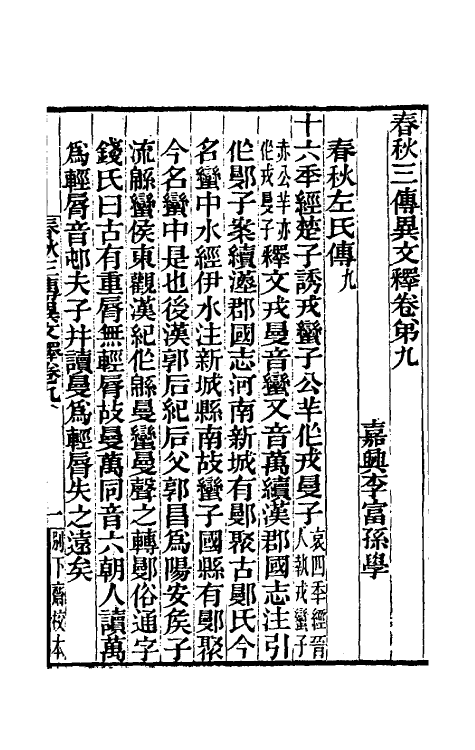 春秋三傳異文釋卷第九
嘉興李富孫學
春秋左氏傳九
十六年經楚子誘戎蠻子公羊作戎曼子哀四年經晉人執戎蠻子
赤公羊亦作戎曼子釋文戎曼音蠻又音萬續漢郡國志注引
作鄤子案續漢郡國志河南新城有鄤聚古鄤氏今
名蠻中水經伊水注新城縣南故蠻子國縣有鄤聚
今名蠻中是也後漢郭后紀后父郭昌爲陽安矦子
流緜蠻侯東觀漢紀作緜曼蠻曼聲之轉鄤俗通字
錢氏曰古有重脣無輕脣故曼萬同音六朝人讀萬
爲輕脣音邨夫子幷讀曼爲輕脣失之遠矣
春秋三傳異文釋卷九
一
別下齋校本